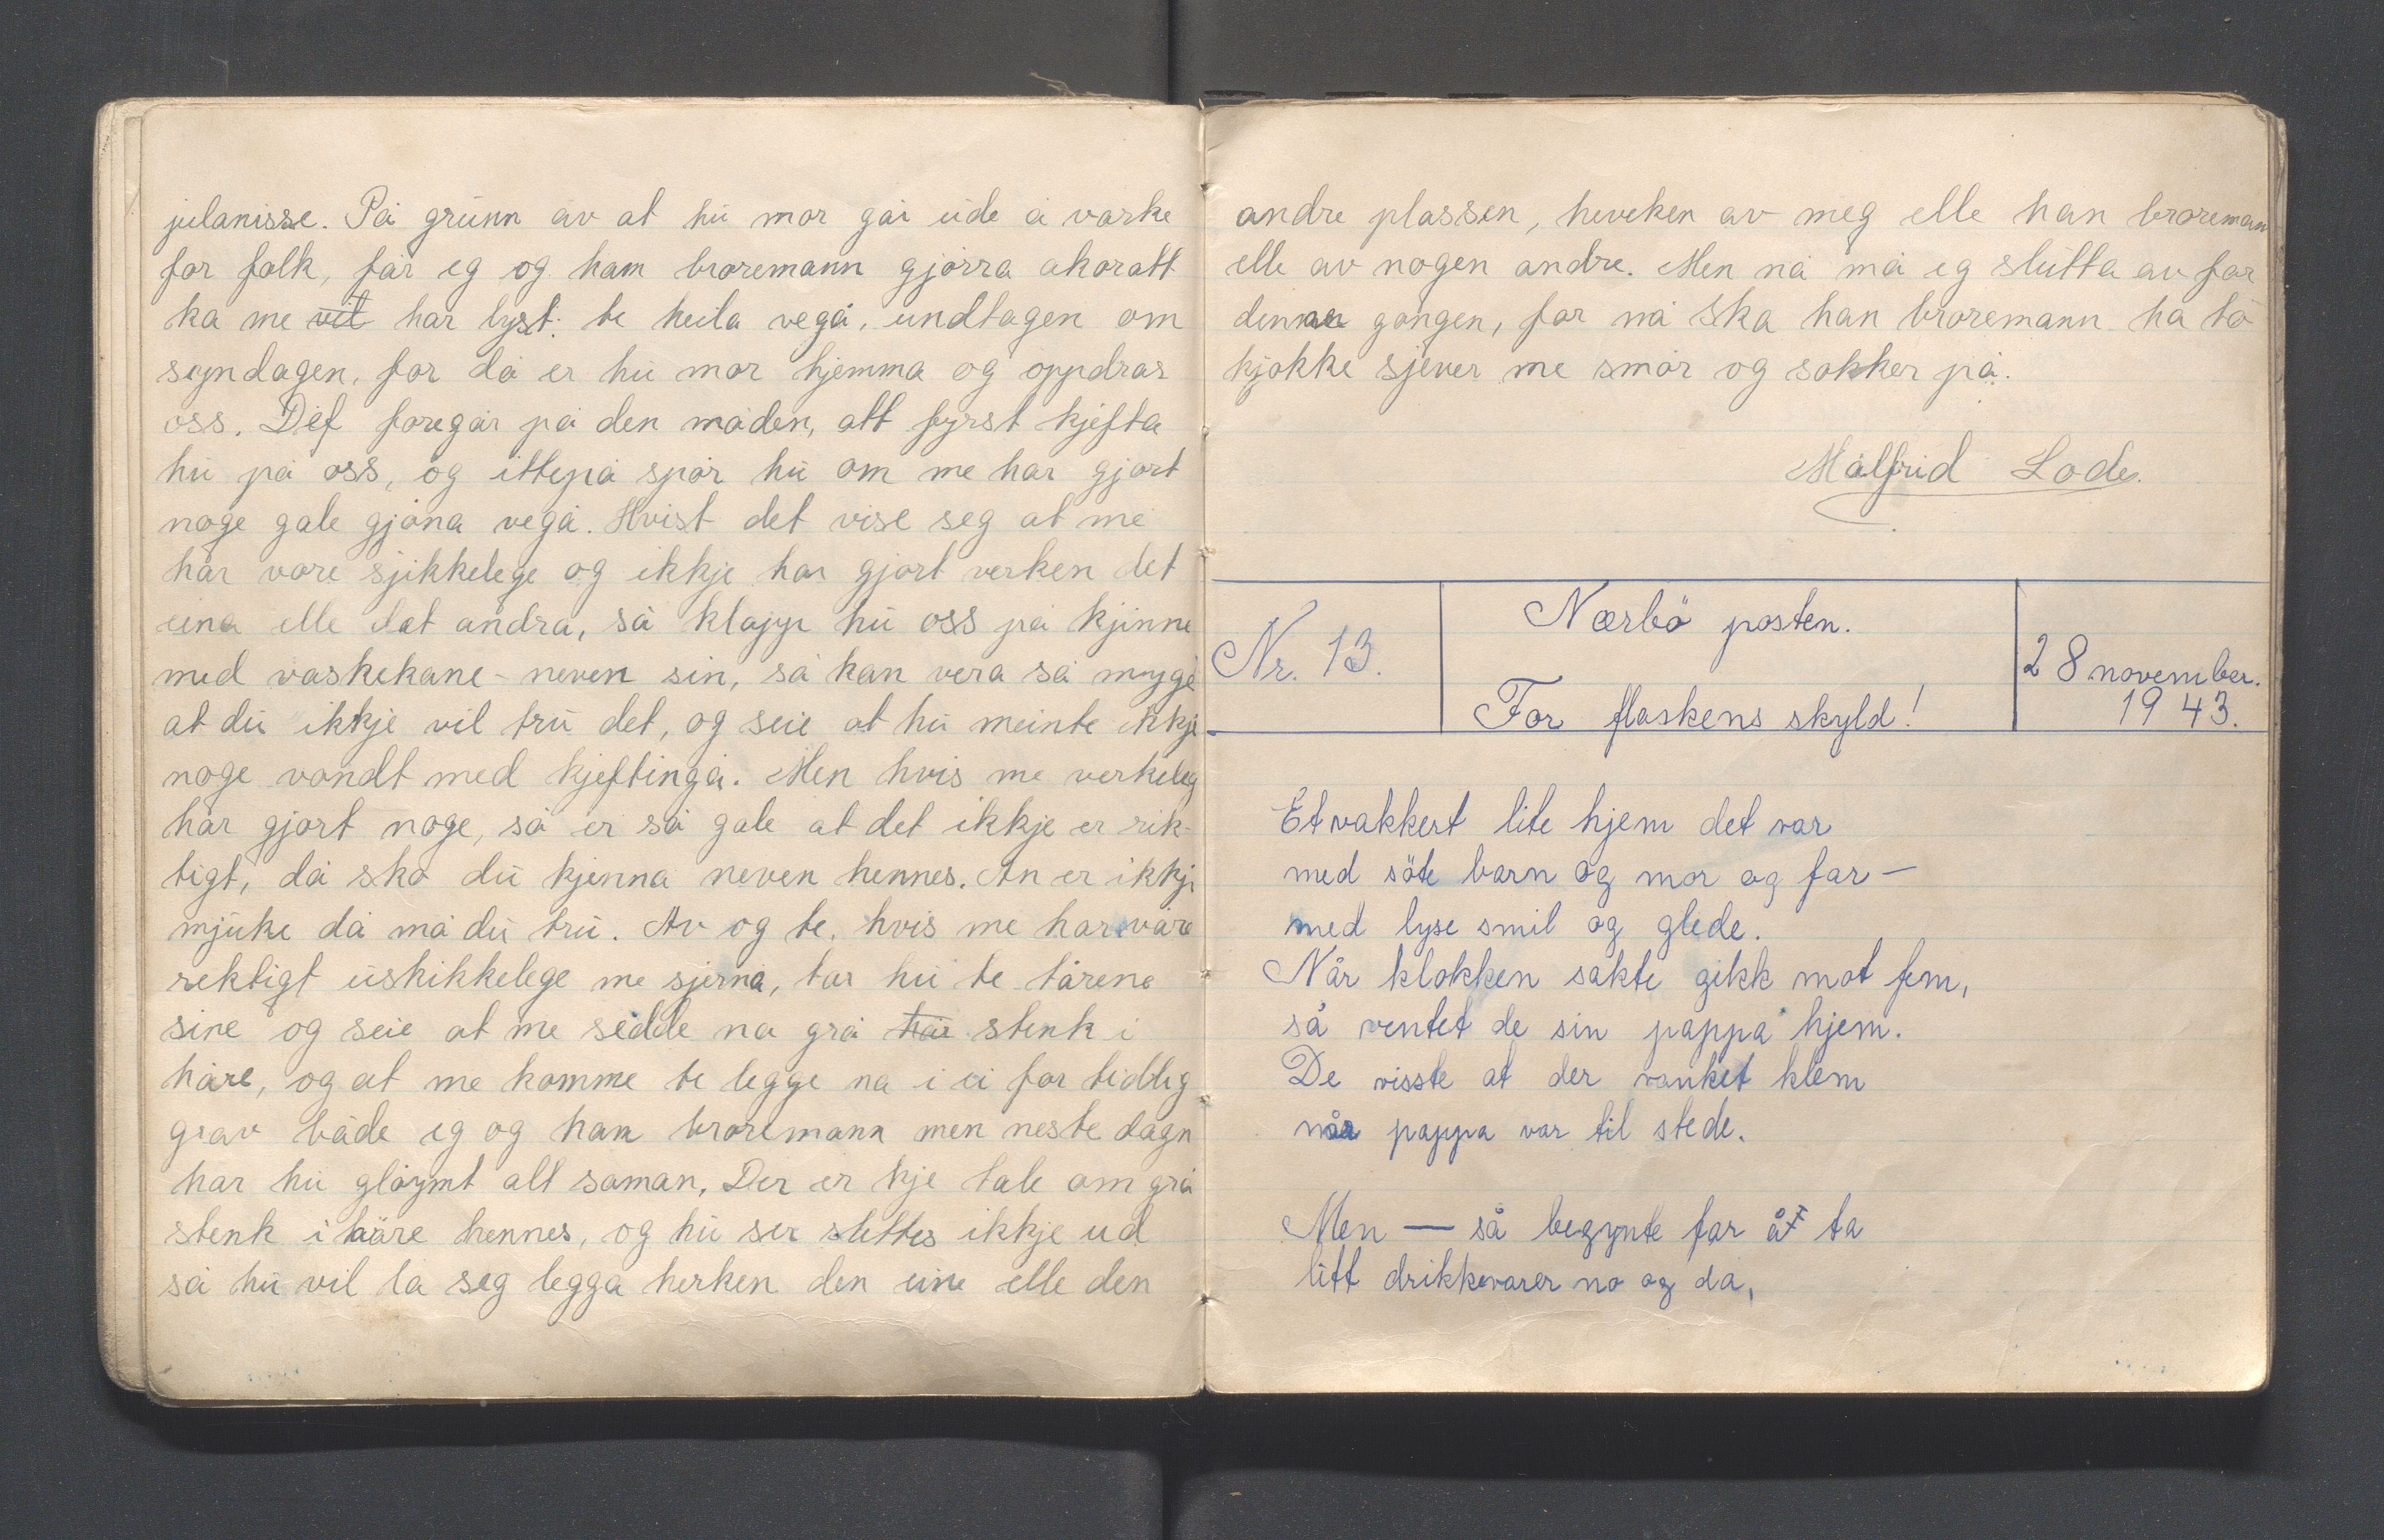 julanisse. På grunn av at hu mor går ude å varke
for folk, får eg og ham broremann gjørra akoratt
ka me vil har lyst te heila vegå, undtagen om
syndagen, for då er hu mor hjemma og oppdrar
oss. Det foregår på den måden, att fyrst kjefta
hu på oss, og ittepå spør hu om me har gjort
noge gale gjøna vegå. Hvist det vise seg at me
har vore sjikkelege og ikkje har gjort verken det
eina elle det andra, så klapp hu oss på kjinne
med vaskekane-neven sin, så kan vera så mygge
at du ikkje vil tru det, og seie at hu meinte ikkje
noge vondt med kjeftingå. Men hvis me verkeleg
har gjort noge, så er så gale at det ikkje er rik-
tigt, då sko du kjenna neven hennes. An er ikkje
mjuke då må du tru. Av og te, hvis me har våre
rektigt uskikkelege me sjerna, tar hu te tårene
sine og seie at me sedde na grå hår stenk i
håre, og at me komme te legge na i ei for tidleg
grav både eg og ham broremann men neste dagn
har hu gløymt alt saman. Der er kje tale om grå
stenk i håre hennes, og hu ser slettes ikkje ud
så hu vil la seg legga herken den eine elle den
andre plassen, heveken av meg elle han broremann
elle av nogen andre. Men nå må eg slutta av for
denne gongen, for nå ska han broremann ha to
kjokke sjever me smør og sokker på.
Målfrid Lode.
Nr. 13.
Nærbö posten.
For flaskens skyld!
28 november.
1943.
Et vakkert lite hjem det var
med söte barn og mor og far —
med lyse smil og glede.
Når klokken sakte gikk mot fem,
så ventet de sin pappa hjem.
De visste at der vanket klem
når pappa var til stede.
Men — så begynte far å ta
litt drikkevarer no og da,